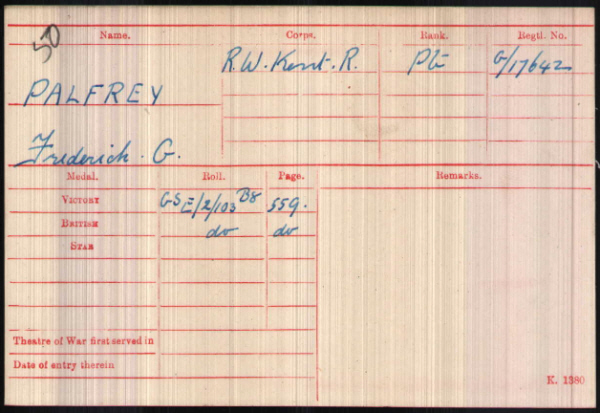 50
Name. Corps. Rank. Regtl. No.
R.W. Kent. R. Pte G/17642
PALFREY
Frederick. G.
Medal. Roll. Page. Remarks.
VICTORY GS E/2/103 B8 559.
BRITISH do do
STAR
Theatre of War first served in
Date of entry therein
K. 1380